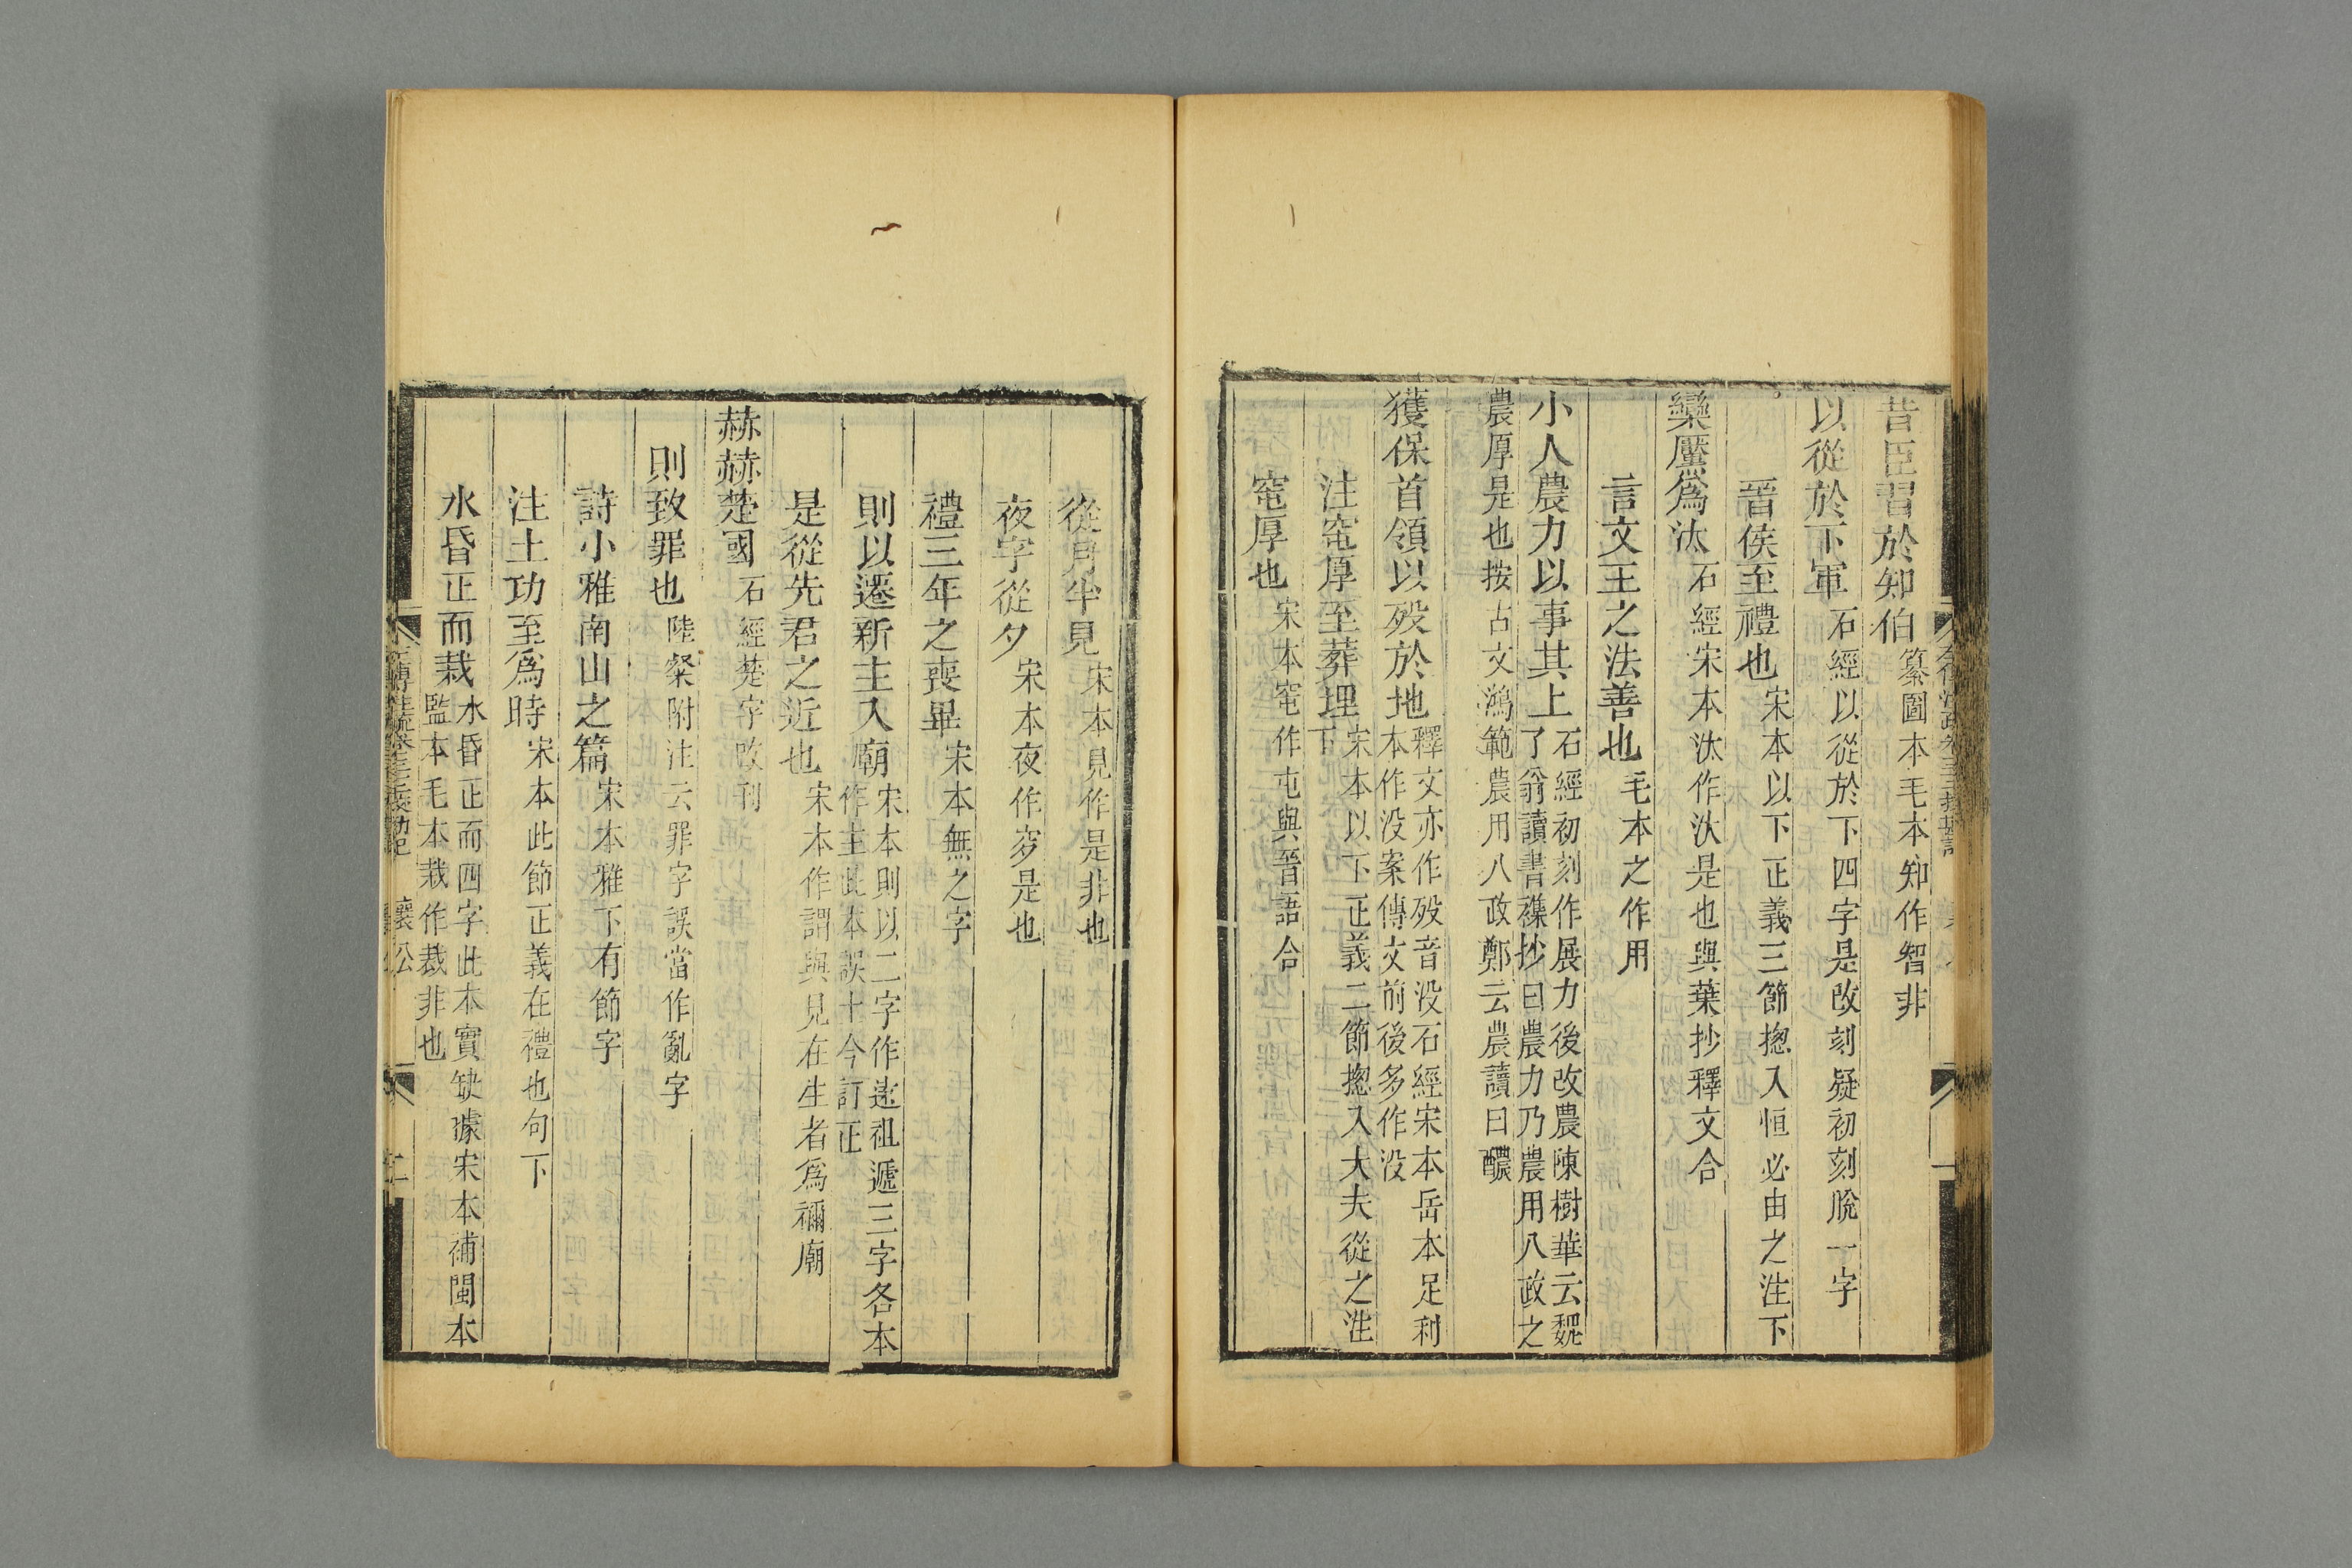 昔臣習於知伯 纂圖本毛本知作智非
以從於下軍 石經以從於下四字是改刻疑初刻脫一字
晉侯至禮也 宋本以下正義三節揔入恒必由之注下
欒黶爲汰 石經宋本汰作汏是也與葉抄釋文合
言文王之法善也 毛本之作用
小人農力以事其上 石經初刻作展力後改農陳樹華云魏
了翁讀書襍抄曰農力乃農用八政之
農厚是也按古文鴻範農用八政鄭云農讀曰醲
獲保首領以歿於地 釋文亦作歿音没石經宋本岳本足利
本作没案傳文前後多作没
注窀厚至葬埋 宋本以下正義二節揔入大夫從之注
下
窀厚也 宋本窀作屯與晉語合
從月半見 宋本見作是非也
夜字從夕 宋本夜作穸是也
禮三年之喪畢 宋本無之字
則以遷新主入廟 宋本則以二字作遠祖遞三字各本
作主此本誤十今訂正
是從先君之近也 宋本作謂與見在生者爲禰廟
赫赫楚國 石經楚字改刊
則致罪也 陸粲附注云罪字誤當作亂字
詩小雅南山之篇 宋本雅下有節字
注土功至爲時 宋本此節正義在禮也句下
水昏正而栽 水昏正而四字此本實缺據宋本補閩本
監本毛本栽作裁非也
襄公